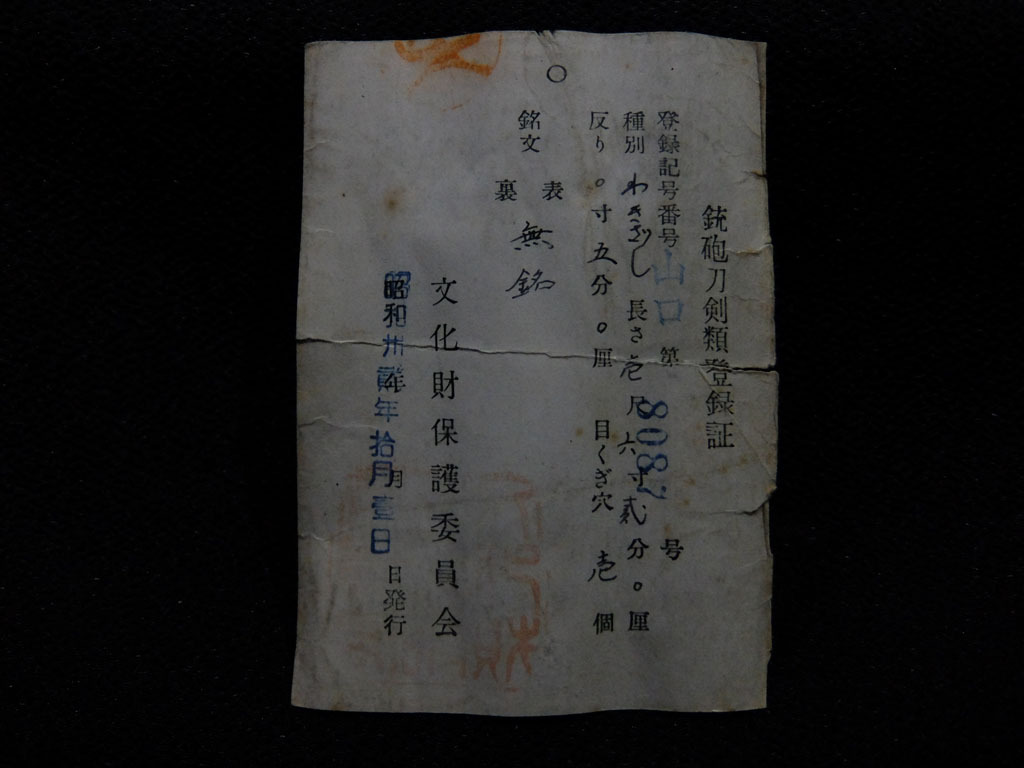 銃砲刀剣類登録証
登録記号番号 山口 第 8087 号
種別 わきざし 長さ 壱尺六寸貳分〇厘
反り 〇寸五分〇厘 目くぎ穴 壱個
銘文 表 無銘
裏
文化財保護委員会
昭和 年 月 日発行
昭和卅貳年拾月壹日